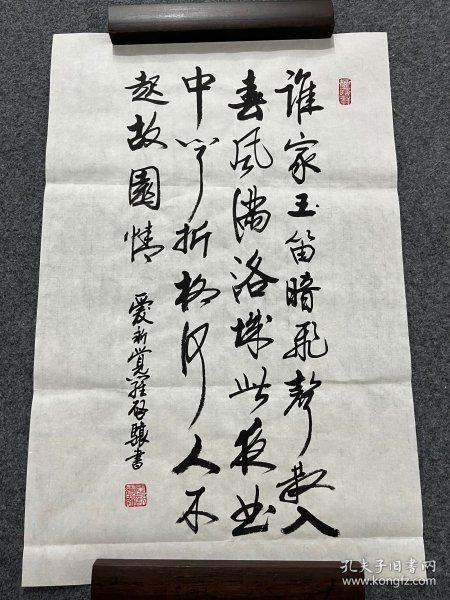 谁家玉笛暗飛聲散入
春风满洛城此夜曲
中闻折柳何人不
起故園情
愛新覺羅啟驤書
孔夫子旧书网
www.kongfz.com